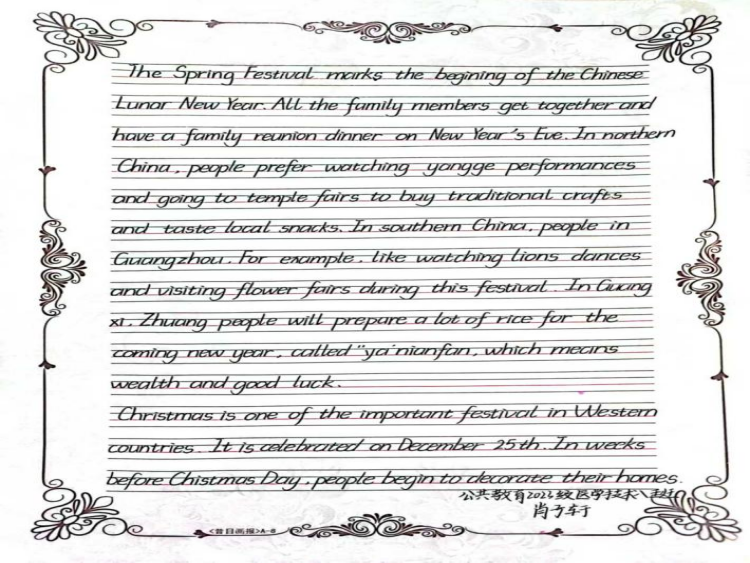 The Spring Festival marks the begining of the Chinese
Lunar New Year. All the family members get together and
have a family reunion dinner on New Year's Eve. In northern
China, people prefer watching yangge performances
and going to temple fairs to buy traditional crafts
and taste local snacks. In southern China, people in
Guangzhou. For example, like watching lions dances
and visiting flower fairs during this festival. In Guang
xi, Zhuang people will prepare a lot of rice for the
coming new year, called "ya'nianfan, which means
wealth and good luck.
Christmas is one of the important festival in Western
countries. It is celebrated on December 25th. In weeks
before Chistmas Day, people begin to decorate their homes.
公共教育2023级医学技术
肖子轩
A-8